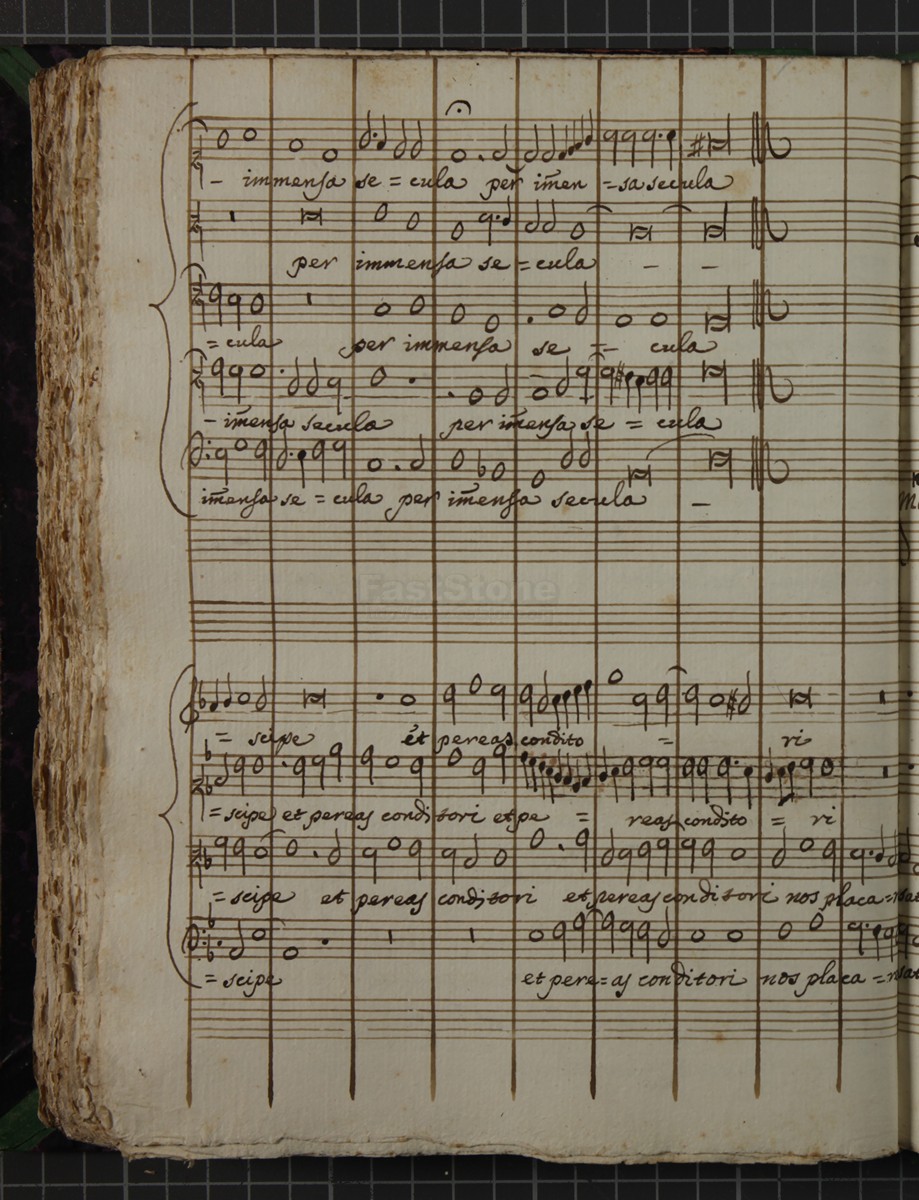 - immensa se = cula per im̄en = sa secula
per immensa se = cula - -
= cula per immensa se = cula
- im̄ensa secula per im̄ensa se = cula
im̄ensa se = cula per im̄ensa secula -
FastStone
= scipe et pereas condito = ri
= scipe et pereas conditori et pe = reas condito = ri
= scipe et pereas conditori et pereas conditori nos placa =
= scipe et pere=as conditori nos placa =